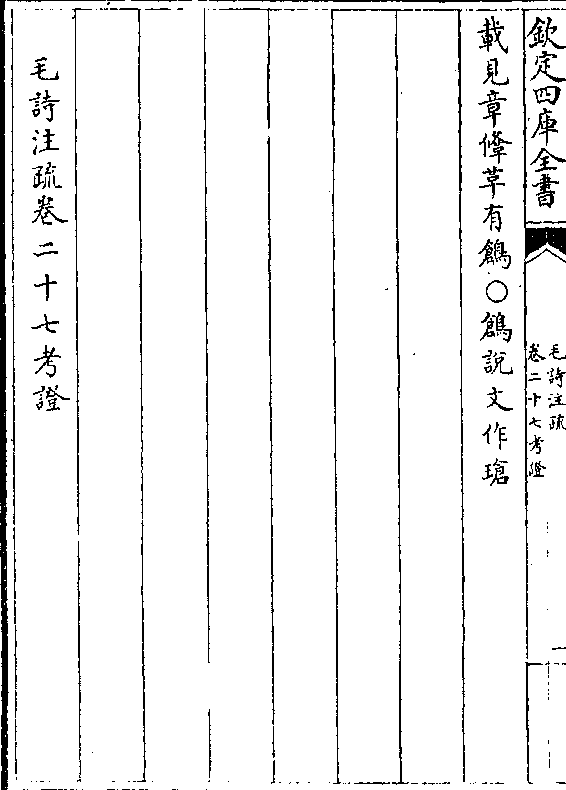 欽定四庫全書
毛詩注疏
卷二十七考證
一
載見章鞗革有鶬○鶬說文作瑲
毛詩注疏卷二十七考證